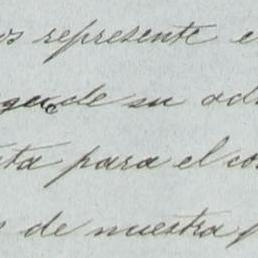 os represente e
de su ad
ta para el co
s de nuestra p